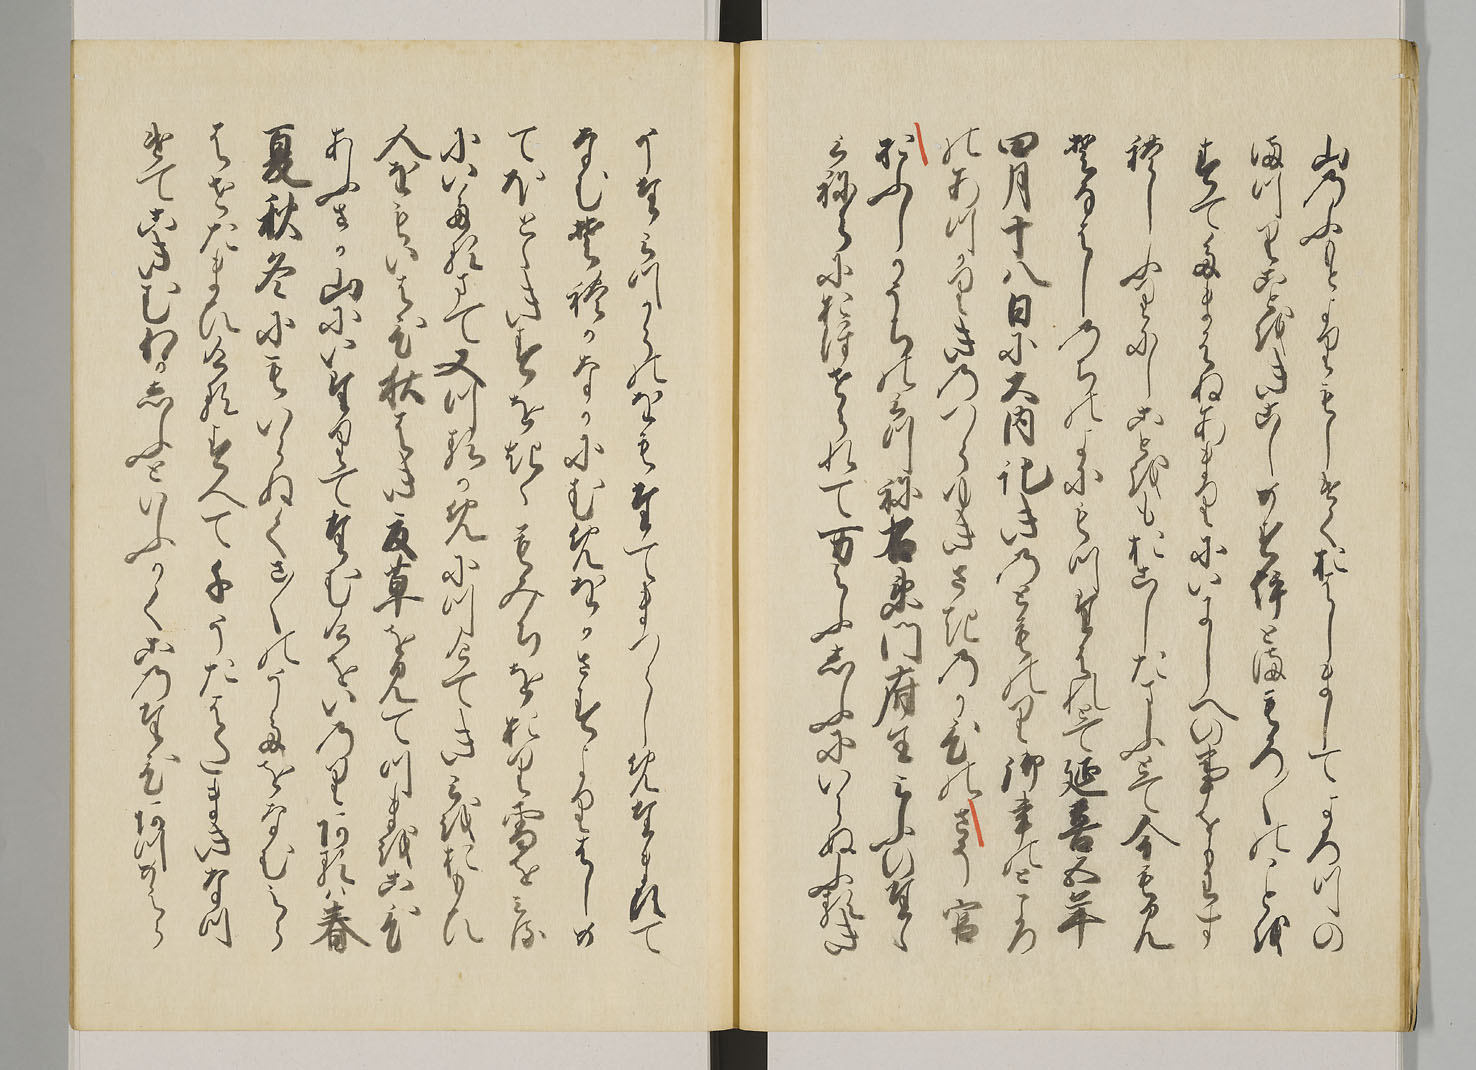 山のふもとよりもしけくおはしましてよろつの
まつりことをきこしめすいとまもろ〱のことを
すてたまはぬあまりにいにしへの事をもわす
れしふりにしことをもおこしたまふとて今もみ
そなはしのちのよにもつたはれとて延喜五年
四月十八日に大内記きのとものり御書のところ
のあつかりきのつらゆきさきのかひのさう官
おふしかうちのみつね右衛門府生みふのたゝ
みねらにおほせられて万えふしふにいらぬふるき
うたみつからのをもたてまつらしめたまひて
なむそれかなかにむめをかさすよりはしめ
てほとゝきすをきゝもみちをおり雪をみる
にいたるまて又つるかめにつけてきみをおもひ
人をもいはひ秋はき夏草を見てつまをこひ
あふさか山にいたりてたむけをいのりあるは春
夏秋冬にもいらぬくさ〱のうたをなむえら
はせたまひけるすへて千うたはたまきなつ
けてこきむわかしふといふかくこのたひあつめら